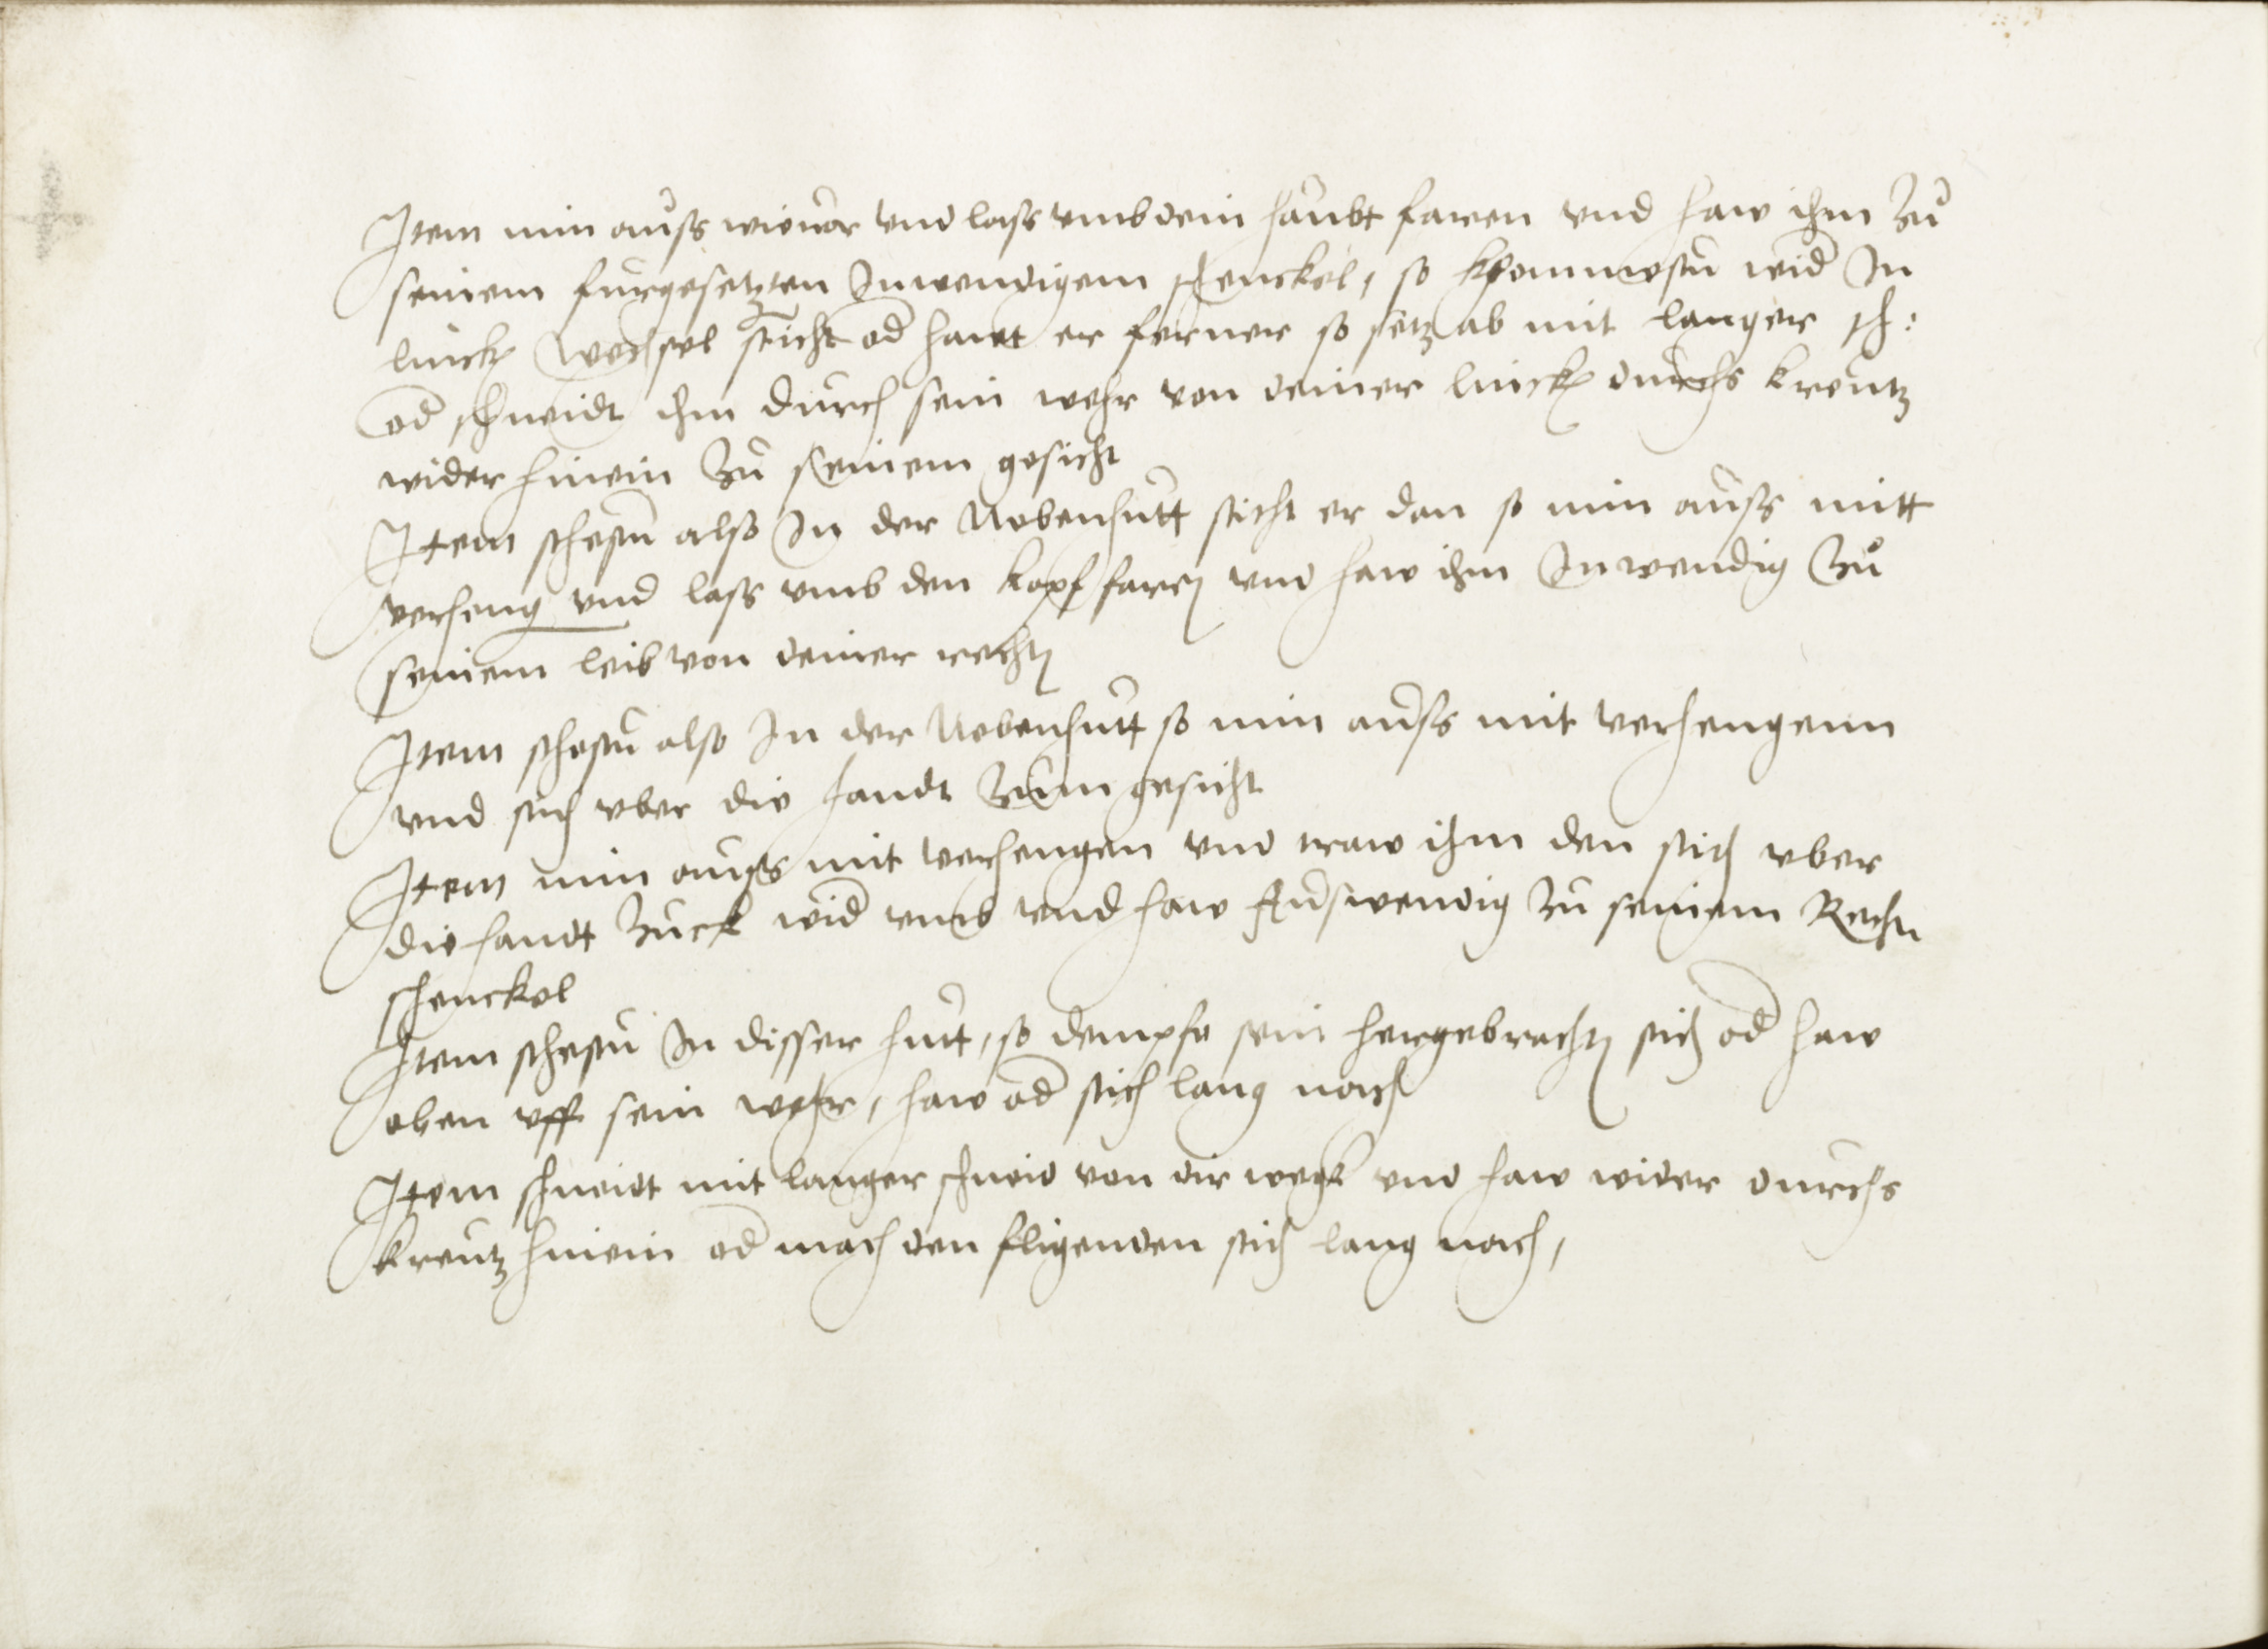 Item nim auss wie vor vnd lass vmb dein haubt faren vnd haw ihm zu
seinem furgesetzten Inwendigem schenckel, so kommestu wid In
linck wechsel sticht od hawt er ferner so setz ab mit langer sch:
od schneidt ihm durch sein wehr von deiner linck durchs kreutz
wider hinein zu seinem gesicht
Item schestu also In der Nebenhutt sticht er dan so nim auss mitt
verheng vnd lass vmb den kopf faren vnd haw ihm Inwendig zu
seinem leib von deiner rechten
Item schestu also In der Nebenhutt so nim auss mit verhengenn
vnd stich vber die handt zum gesicht
Item nim auss mit verhengen vnd traw ihm den stich vber
die handt zuck wid vmb vnd haw Auswendig zu seinem Rechten
schenckel
Item schestu In disser hutt, so dempfe sein hergebrachten stich od haw
oben vff sein wehr, haw od stich lang nach
Item schneidt mit langer schneid von dir weck vnd haw wider durchs
kreutz hinein od mach den fligenden stich lang nach,